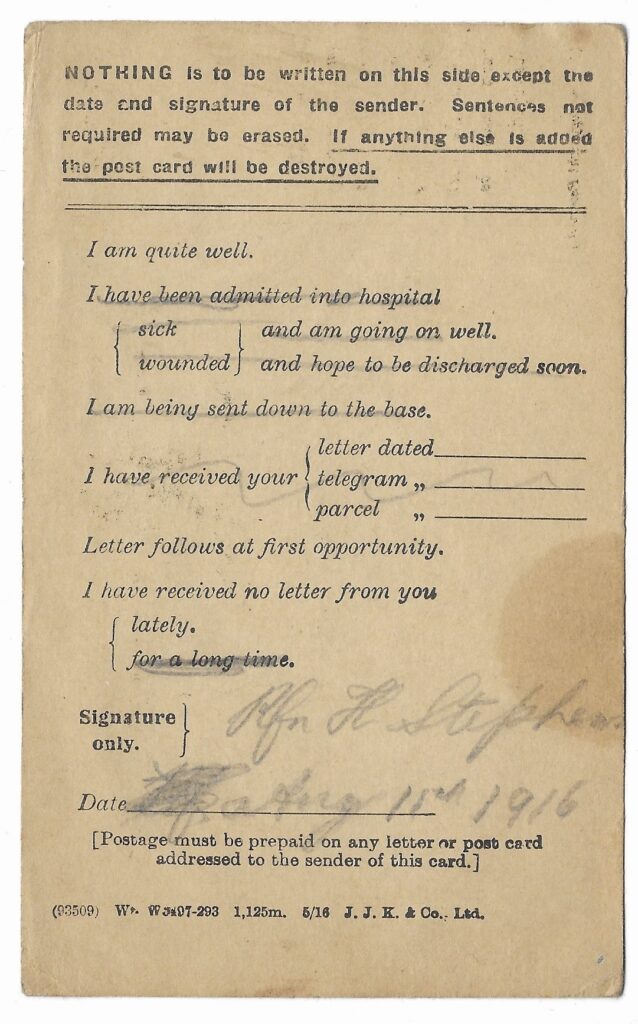 NOTHING is to be written on this side except the
date and signature of the sender. Sentences not
required may be erased. If anything else is added
the post card will be destroyed.
I am quite well.
I have been admitted into hospital
sick and am going on well.
wounded and hope to be discharged soon.
I am being sent down to the base.
letter dated
I have received your telegram „
parcel „
Letter follows at first opportunity.
I have received no letter from you
lately.
for a long time.
Signature only. Rfn H Stephens
Date Aug 1916
[Postage must be prepaid on any letter or post card
addressed to the sender of this card.]
(93509) Wt. 1,125m. 5/16 J. J. K. & Co., Ltd.